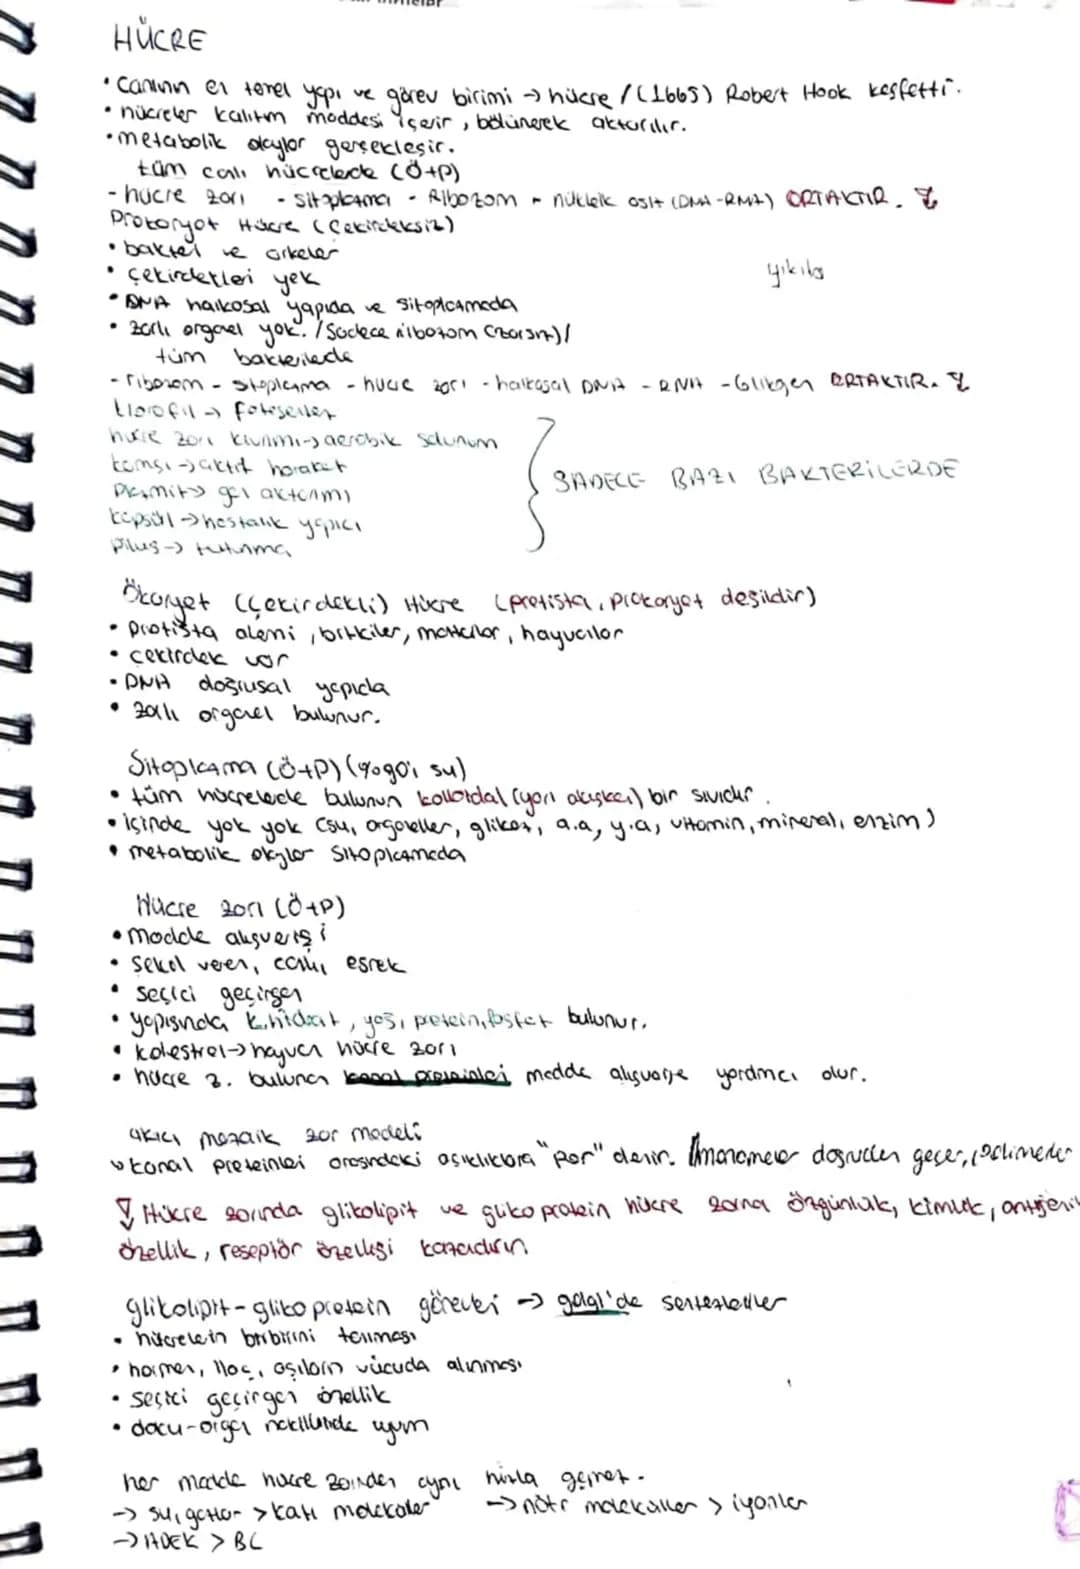 HÜCRE
• Canının en temel yapı ve görev birimi → hücre / (1665) Robert Hook keşfetti.
• hücreler kalıtım maddesi içerir, bölünerek aktarılır.
• metabolik olaylar gerçekleşir.
tüm canlı hücrelerde (Ö+P)
- hücre zarı - sitoplazma - Ribozom - nükleik asit (DNA-RNA) ORTAKTIR.
Prokaryot Hücre (Çekirdeksiz)
• bakteri ve arkeler
• çekirdekleri yok
• DNA halkasal yapıda ve sitoplazmada
• zarlı organel yok. / Sadece ribozom (zarsız) /
tüm bakterilerde
- ribozom - sitoplazma - hücre zarı - halkasal DNA - RNA - Glikojen ORTAKTIR.
klorofil → fotosentez
hücre zarı kıvrımı → aerobik solunum
kamçı → aktif hareket
plazmit → gen aktarımı
kapsül → hastalık yapıcı
pilus → tutunma
SADECE BAZI BAKTERİLERDE
Ökaryot (Çekirdekli) Hücre (protista, prokaryot değildir)
• protista alemi, bitkiler, mantarlar, hayvanlar
• çekirdek var
• DNA doğrusal yapıda
• zarlı organel bulunur.
Sitoplazma (Ö+P) (%90'ı su)
• tüm hücrelerde bulunun kolloidal (yarı akışkan) bir sıvıdır.
• içinde yok yok (su, organeller, glikoz, a.a, y.a, vitamin, mineral, enzim)
• metabolik olaylar sitoplazmada
Hücre zarı (Ö+P)
• Madde alışverişi
• Şekil veren, canlı esnek
• seçici geçirgen
• yapısında k.hidrat, yağ, protein, fosfat bulunur.
• kolestrol → hayvan hücre zarı
• hücre z. bulunan kanal proteinleri madde alışverişe yardımcı olur.
akıcı mozaik zar modeli
kanal proteinleri arasındaki açıklıklara "por" denir. (monomerler doğrudan geçer, polimerler
Hücre zarında glikolipit ve glikoprotein hücre zarına özgünlük, kimlik, antijenik
özellik, reseptör özelliği kazandırır
glikolipit - glikoprotein görevleri → golgi'de sentezlenirler
• hücrelerin birbirini tanıması
• hormon, ilaç, aşıların vücuda alınması
• seçici geçirgen özellik
• doku-organ nakillerinde uyum
her madde hücre zarından aynı hızla geçmez.
→ su, gazlar > katı moleküller → nötr moleküller > iyonlar
→ ADEK > BC